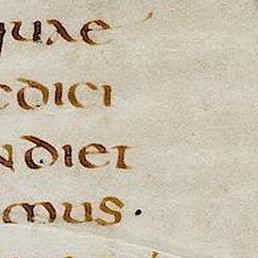 quae
edici
n diet
mus.